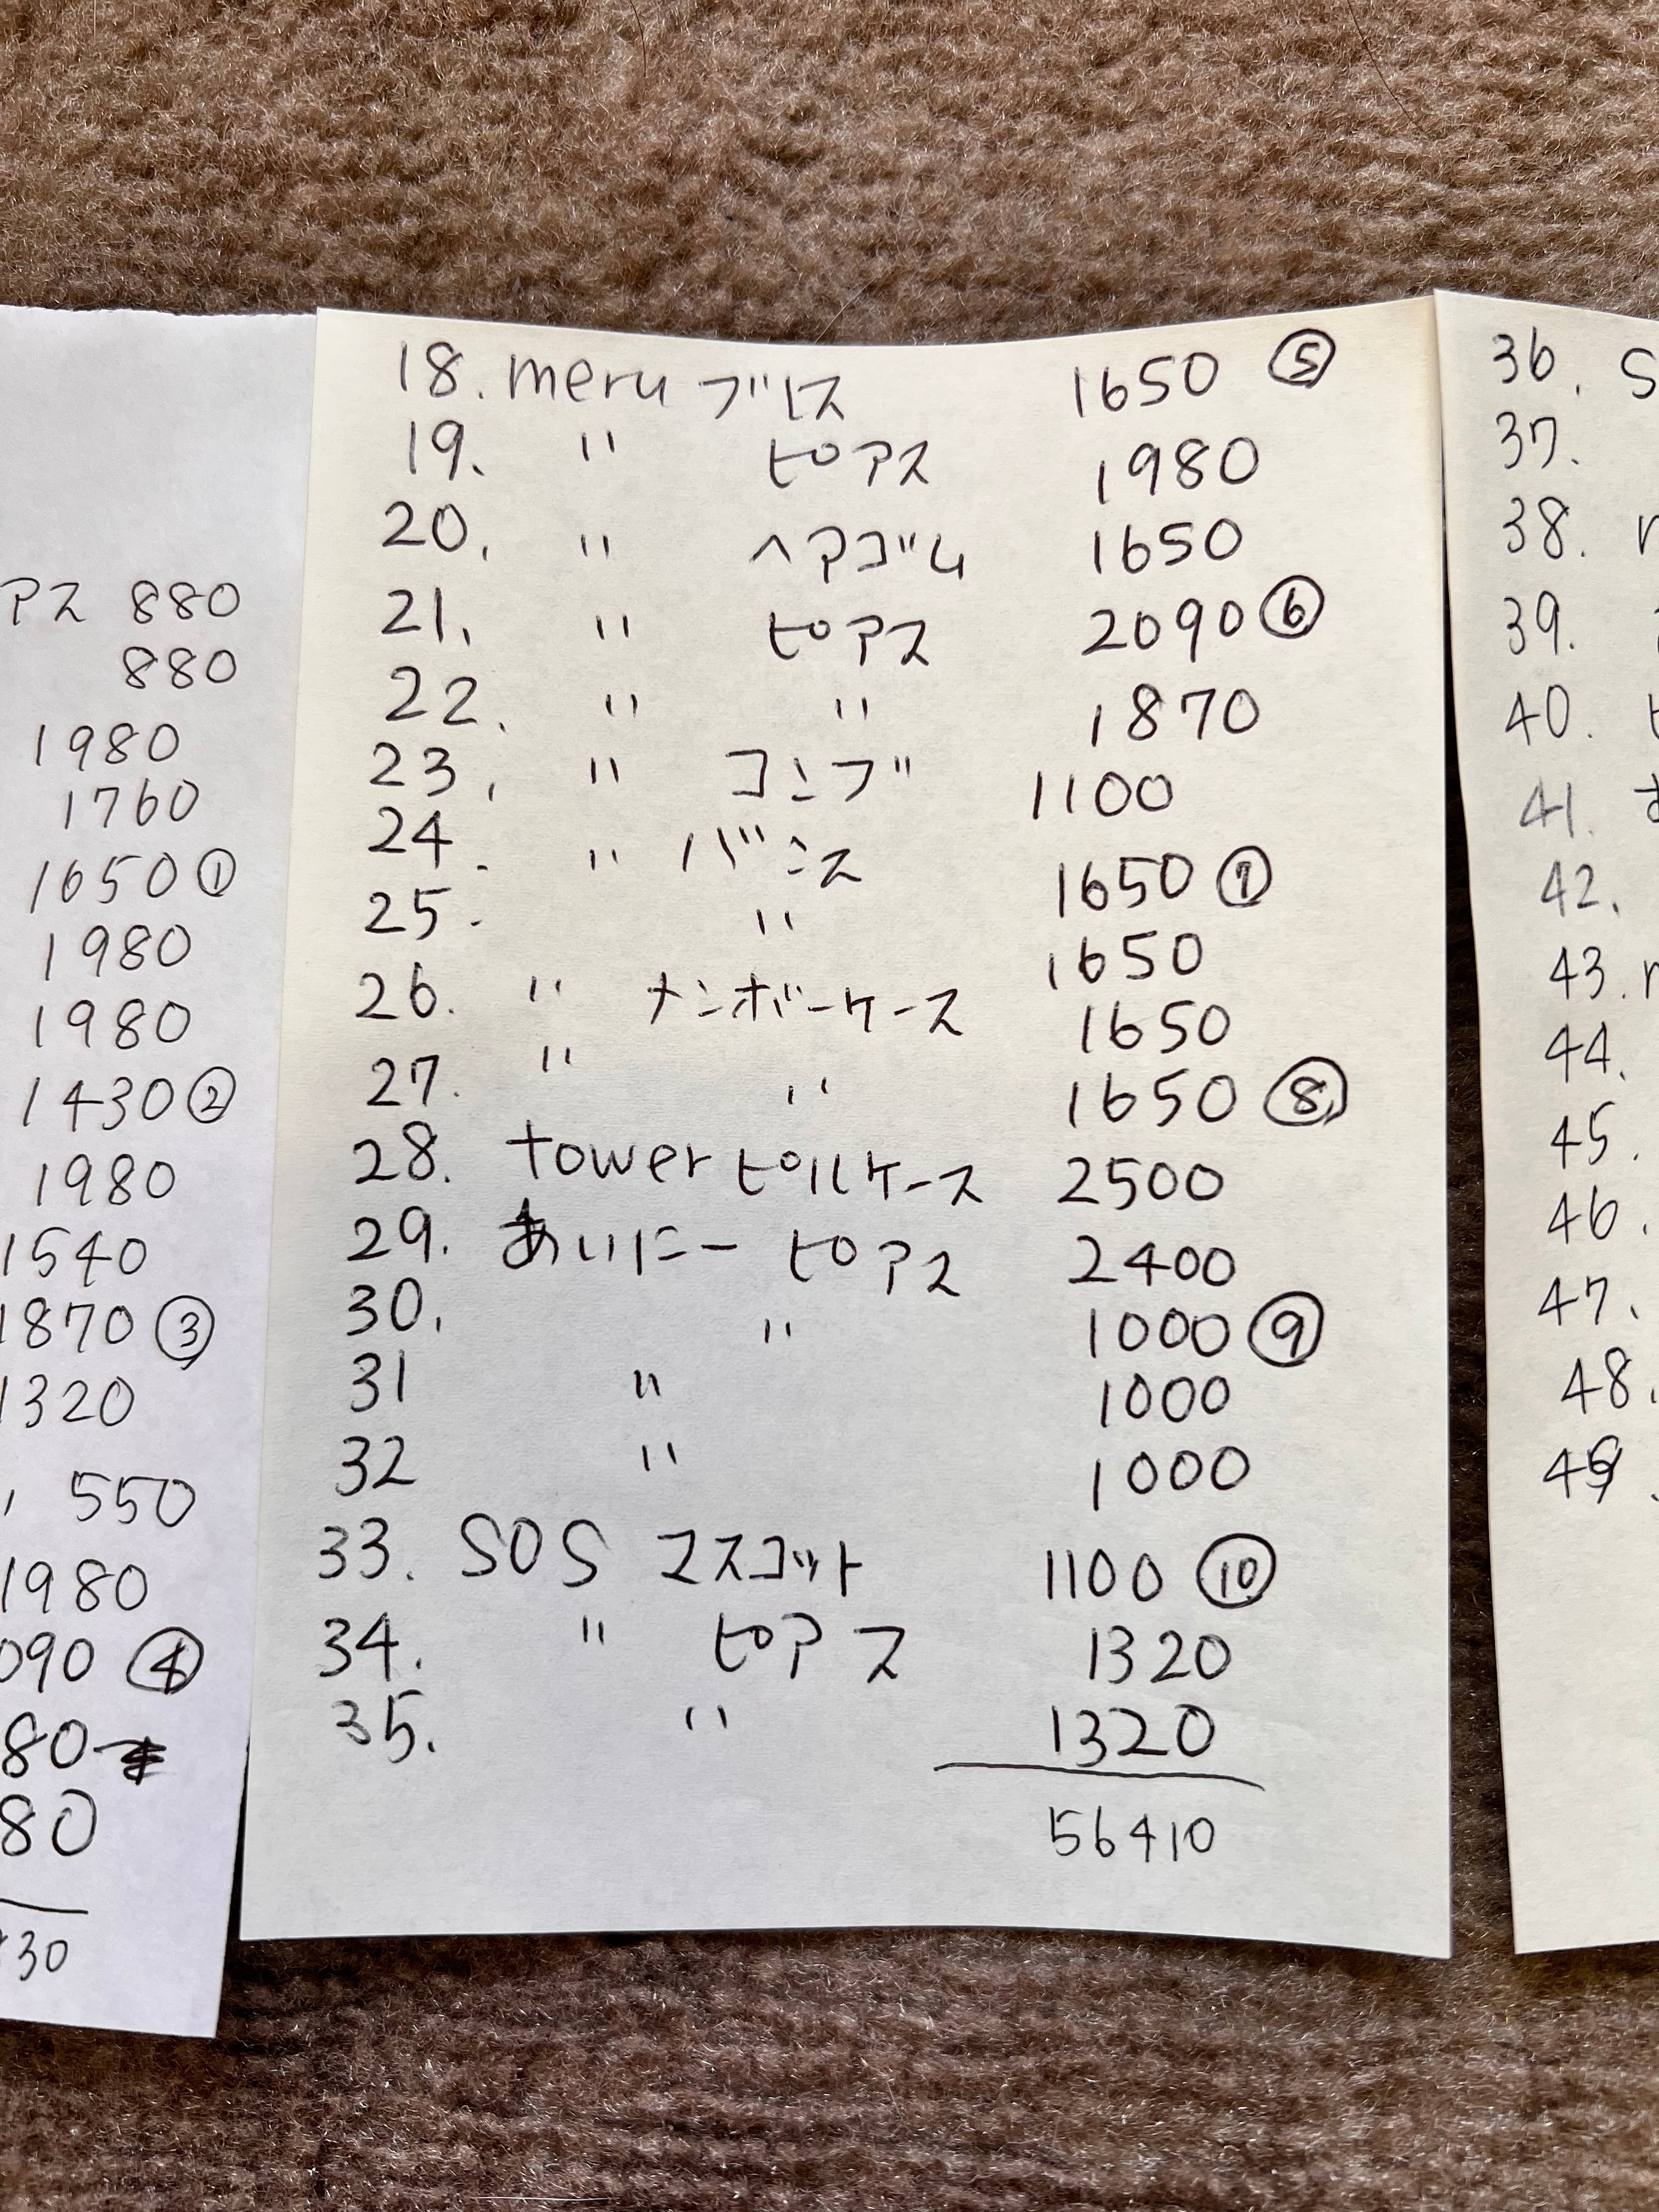 アス 880
880
1980
1760
1650 ①
1980
1980
1430 ②
1980
1540
1870 ③
1320
550
1980
090 ④
80
80
30
18. meru ブレス 1650 ⑤
19. 〃 ピアス 1980
20. 〃 ヘアゴム 1650
21. 〃 ピアス 2090 ⑥
22. 〃 〃 1870
23. 〃 コンブ 1100
24. 〃 バンス 1650 ⑦
25. 〃 1650
26. 〃 メンボーケース 1650
27. 〃 〃 1650 ⑧
28. tower ピルケース 2500
29. あいにー ピアス 2400
30. 〃 1000 ⑨
31 〃 1000
32 〃 1000
33. SOS マスコット 1100 ⑩
34. 〃 ピアス 1320
35. 〃 1320
56410
36. S
37.
38.
39.
40.
41.
42.
43.
44.
45.
46.
47.
48.
49.